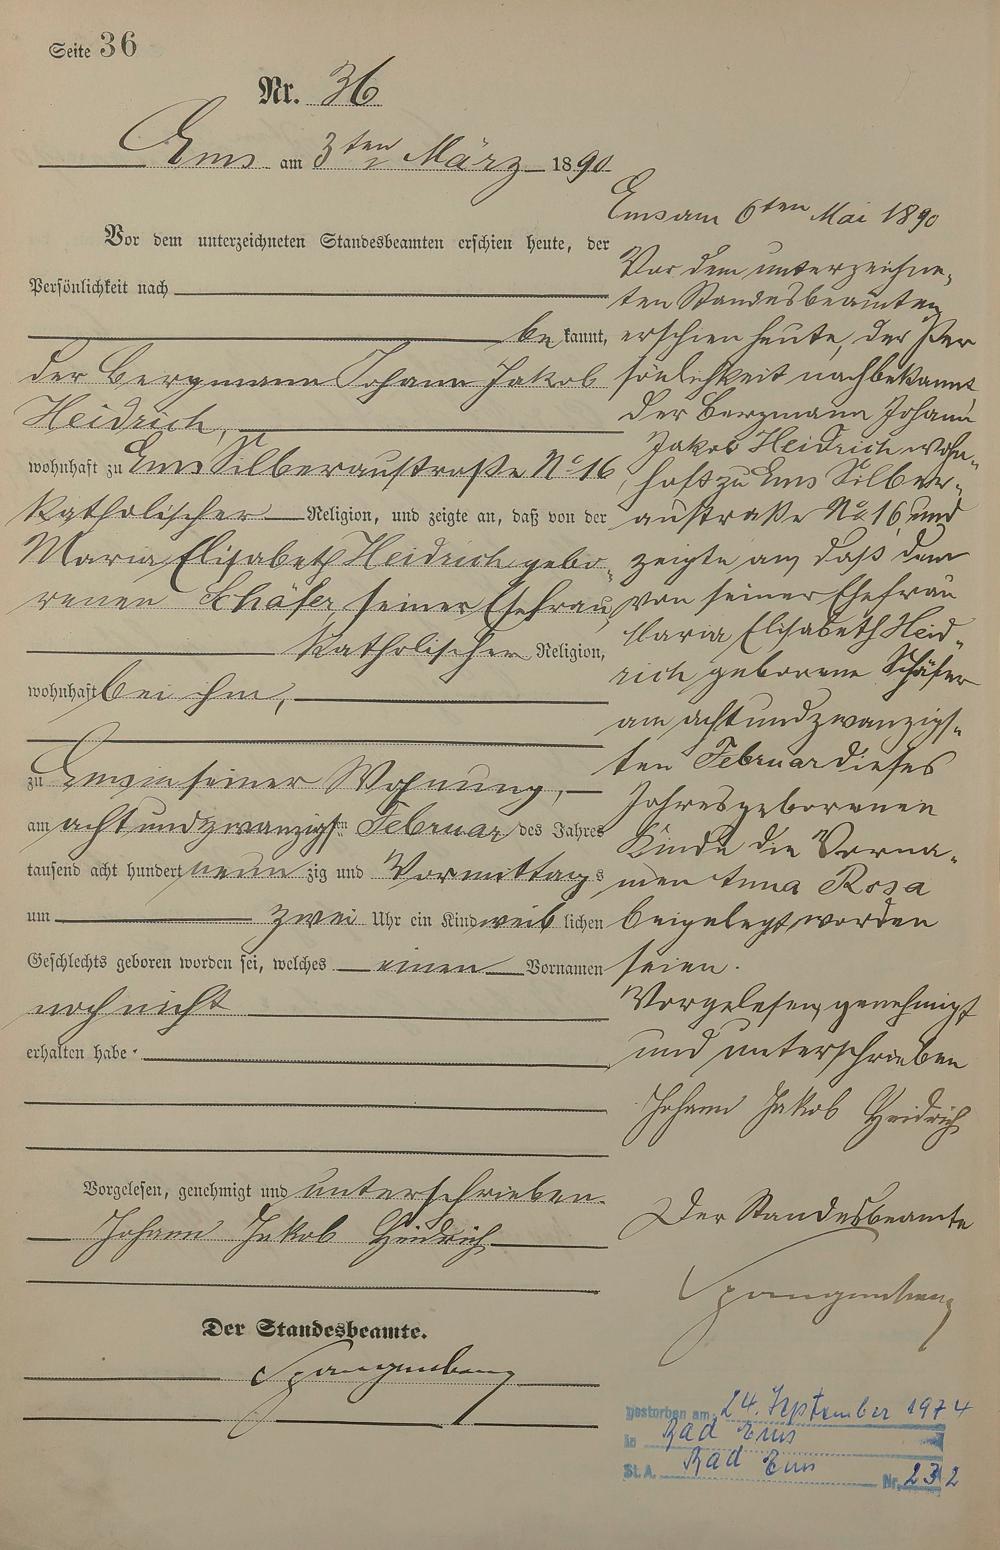 Seite 36
Nr. 36
Ems am 3ten März 1890
Vor dem unterzeichneten Standesbeamten erschien heute, der
Persönlichkeit nach
bekannt,
der Bergmann Johann Jakob
Heidrich,
wohnhaft zu Ems Silberaustraße No 16
katholischer Religion, und zeigte an, daß von der
Maria Elisabeth Heidrich gebo-
renen Schäfer seiner Ehefrau,
katholischer Religion,
wohnhaft bei ihm,
zu Ems in seiner Wohnung,
am acht und zwanzigsten Februar des Jahres
tausend acht hundert neunzig und Vormittags
um zwei Uhr ein Kind weiblichen
Geschlechts geboren worden sei, welches einen Vornamen
noch nicht
erhalten habe.
Vorgelesen, genehmigt und unterschrieben.
Johann Jakob Heidrich
Der Standesbeamte.
Spangenberg
Ems am 6ten Mai 1890
Vor dem unterzeichne-
ten Standesbeamten
erschien heute, der Per
sönlichkeit nach bekannt
der Bergmann Johann
Jakob Heidrich wohn-
haft zu Ems Silber-
austraße No 16, und
zeigte an, daß dem
von seiner Ehefrau
Maria Elisabeth Heid-
rich geborene Schäfer
am acht und zwanzigs-
ten Februar dieses
Jahres geborenen
Kinde die Vorna-
men Anna Rosa
beigelegt worden
seien.
Vorgelesen, genehmigt
und unterschrieben
Johann Jakob Heidrich
Der Standesbeamte
Spangenberg
gestorben am 24. September 1974
in Bad Ems
St. A. Bad Ems Nr. 232